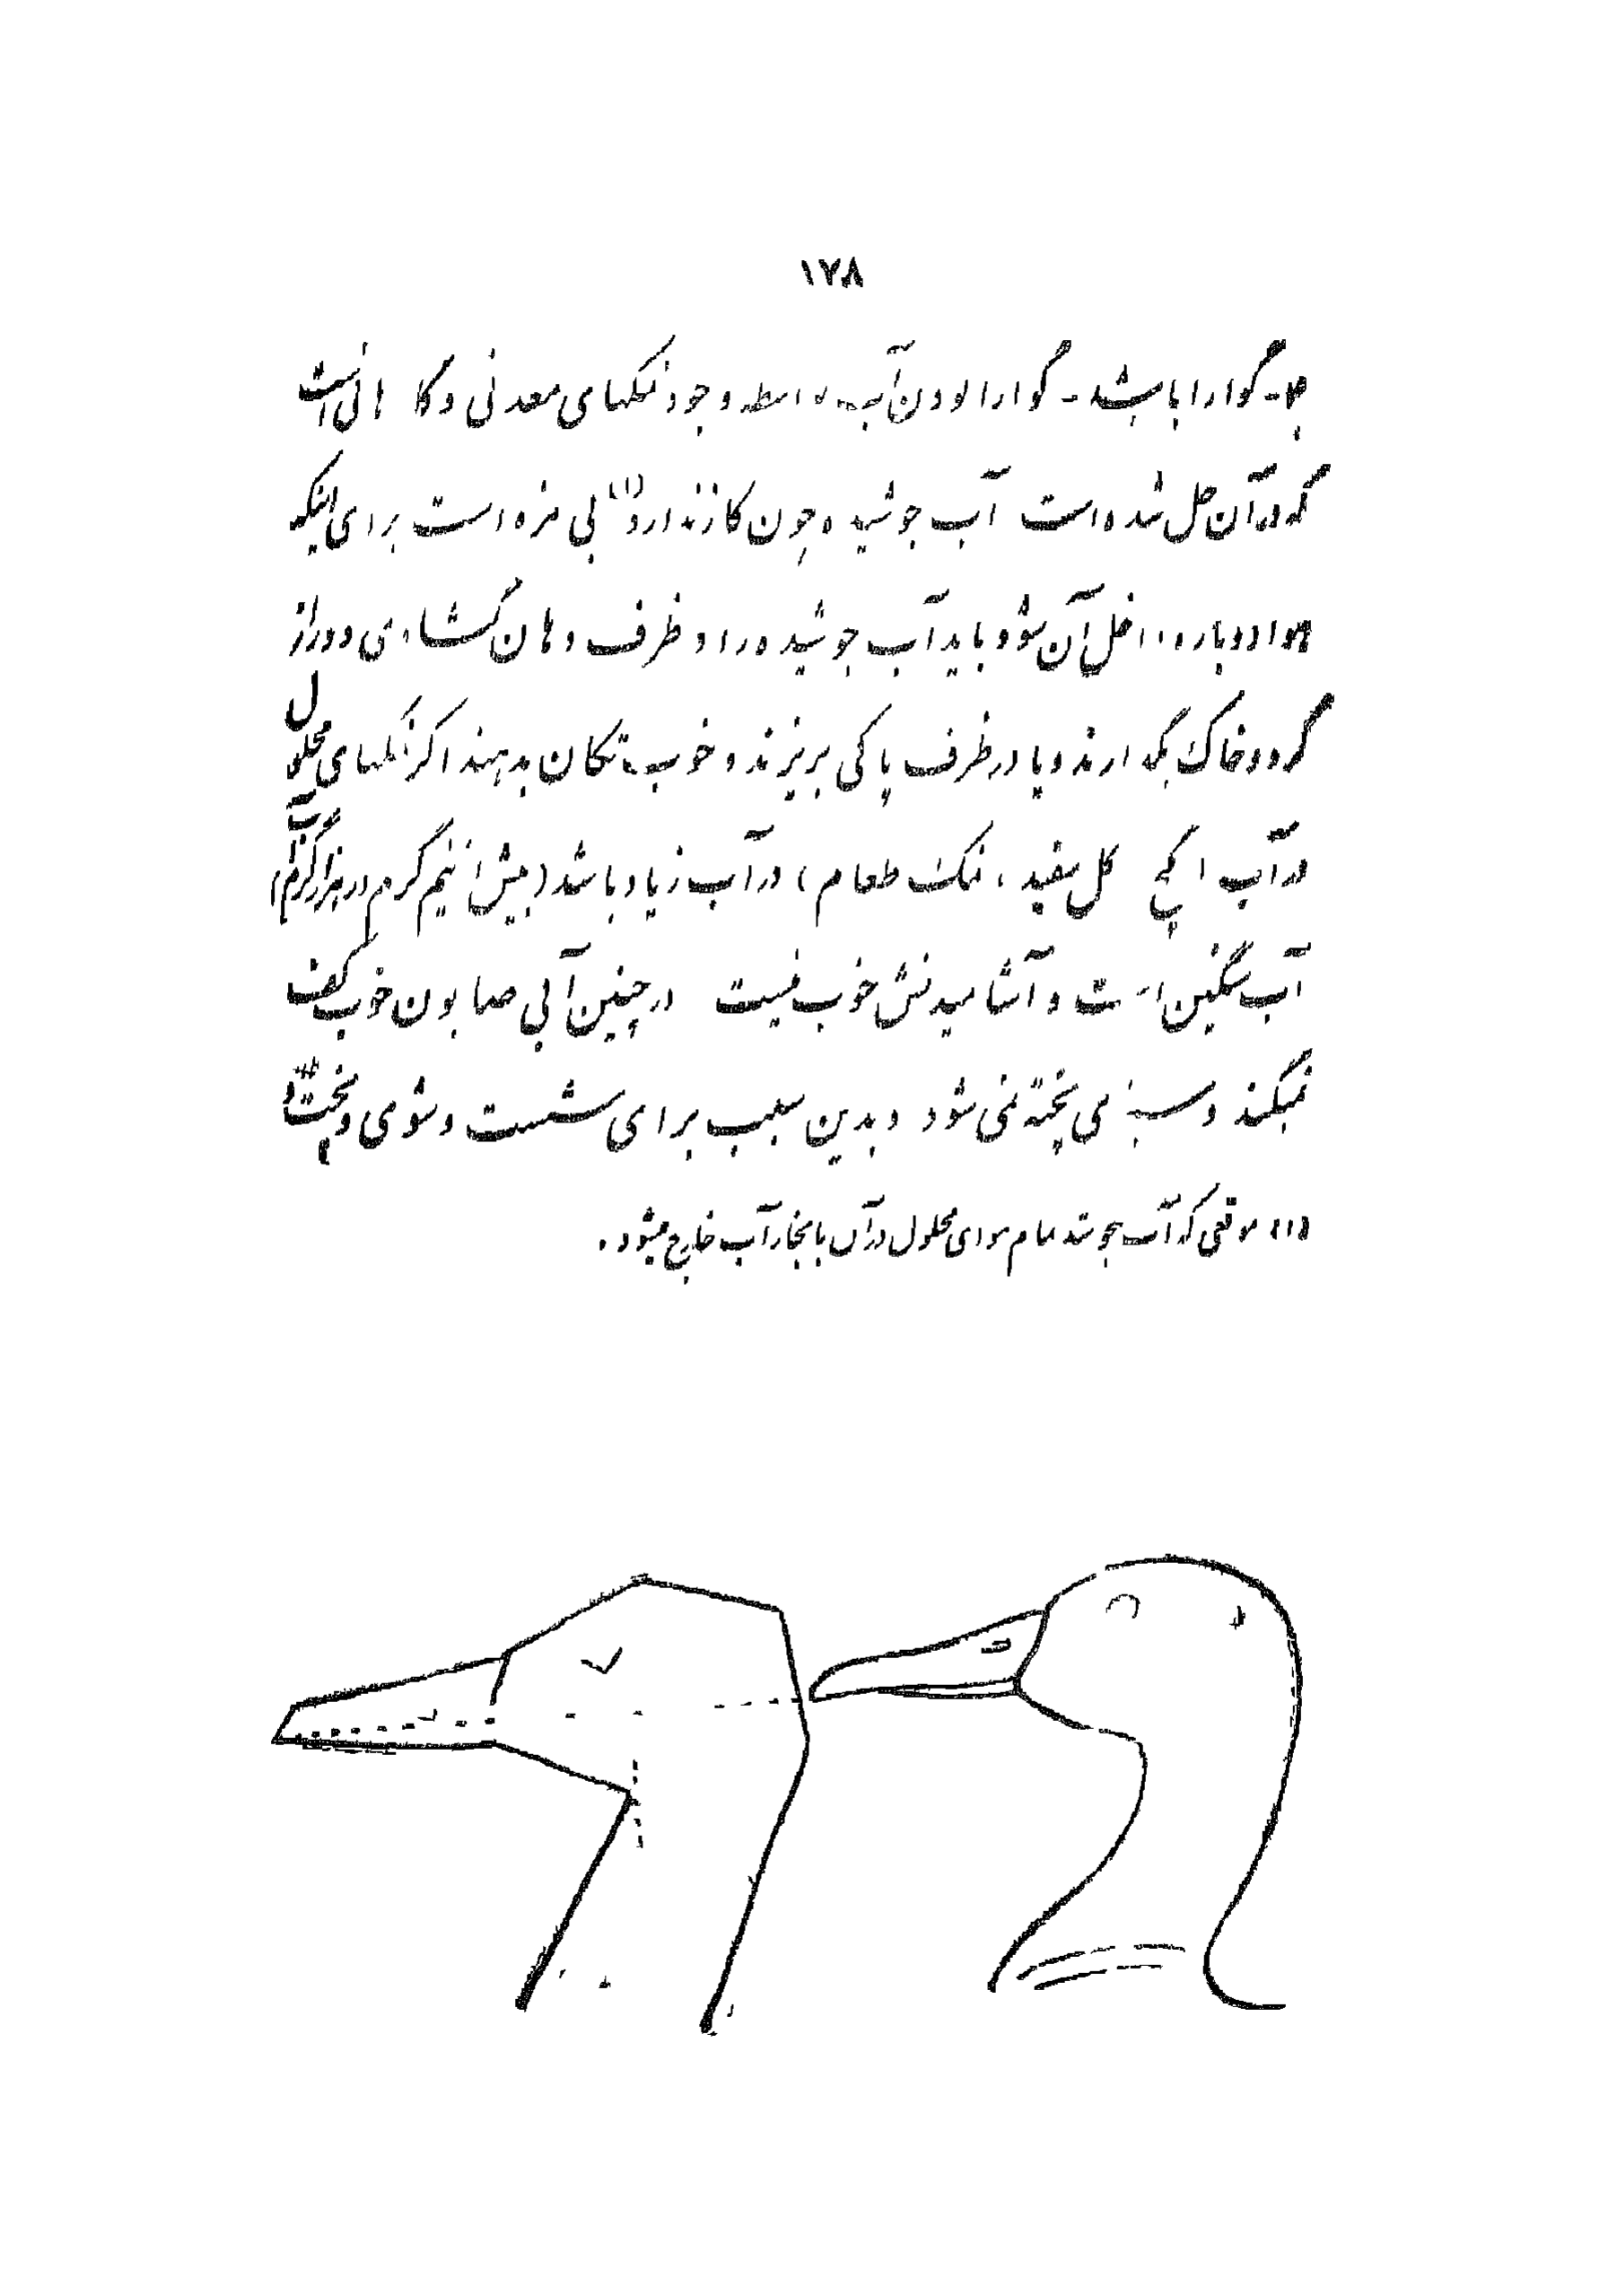 ۱۷۸
ج- گوارا باشد - گوارا بودن آب بواسطه وجود نمکهای معدنی و گازهائی است
که در آن حل شده است آب جوشیده چون گاز ندارد (۱) بی مزه است برای اینکه
هوا دوباره داخل آن شود باید آب جوشیده را در ظرف دهان گشادی دور از
گرد و خاک بگذارند و یا در ظرف پاکی بریزند و خوب تکان بدهند اگر نمکهای محلول
در آب (گچ گل سفید، نمک طعام) در آب زیاد باشد (بیش از نیم گرم در هزار گرم آب)
آب سنگین است و آشامیدنش خوب نیست در چنین آبی صابون خوب کف
نمیکند و سبزی پخته نمی شود و بدین سبب برای شست و شوی و پخت
(۱) موقعی که آب بجوشد تمام هوای محلول در آن با بخار آب خارج میشود.